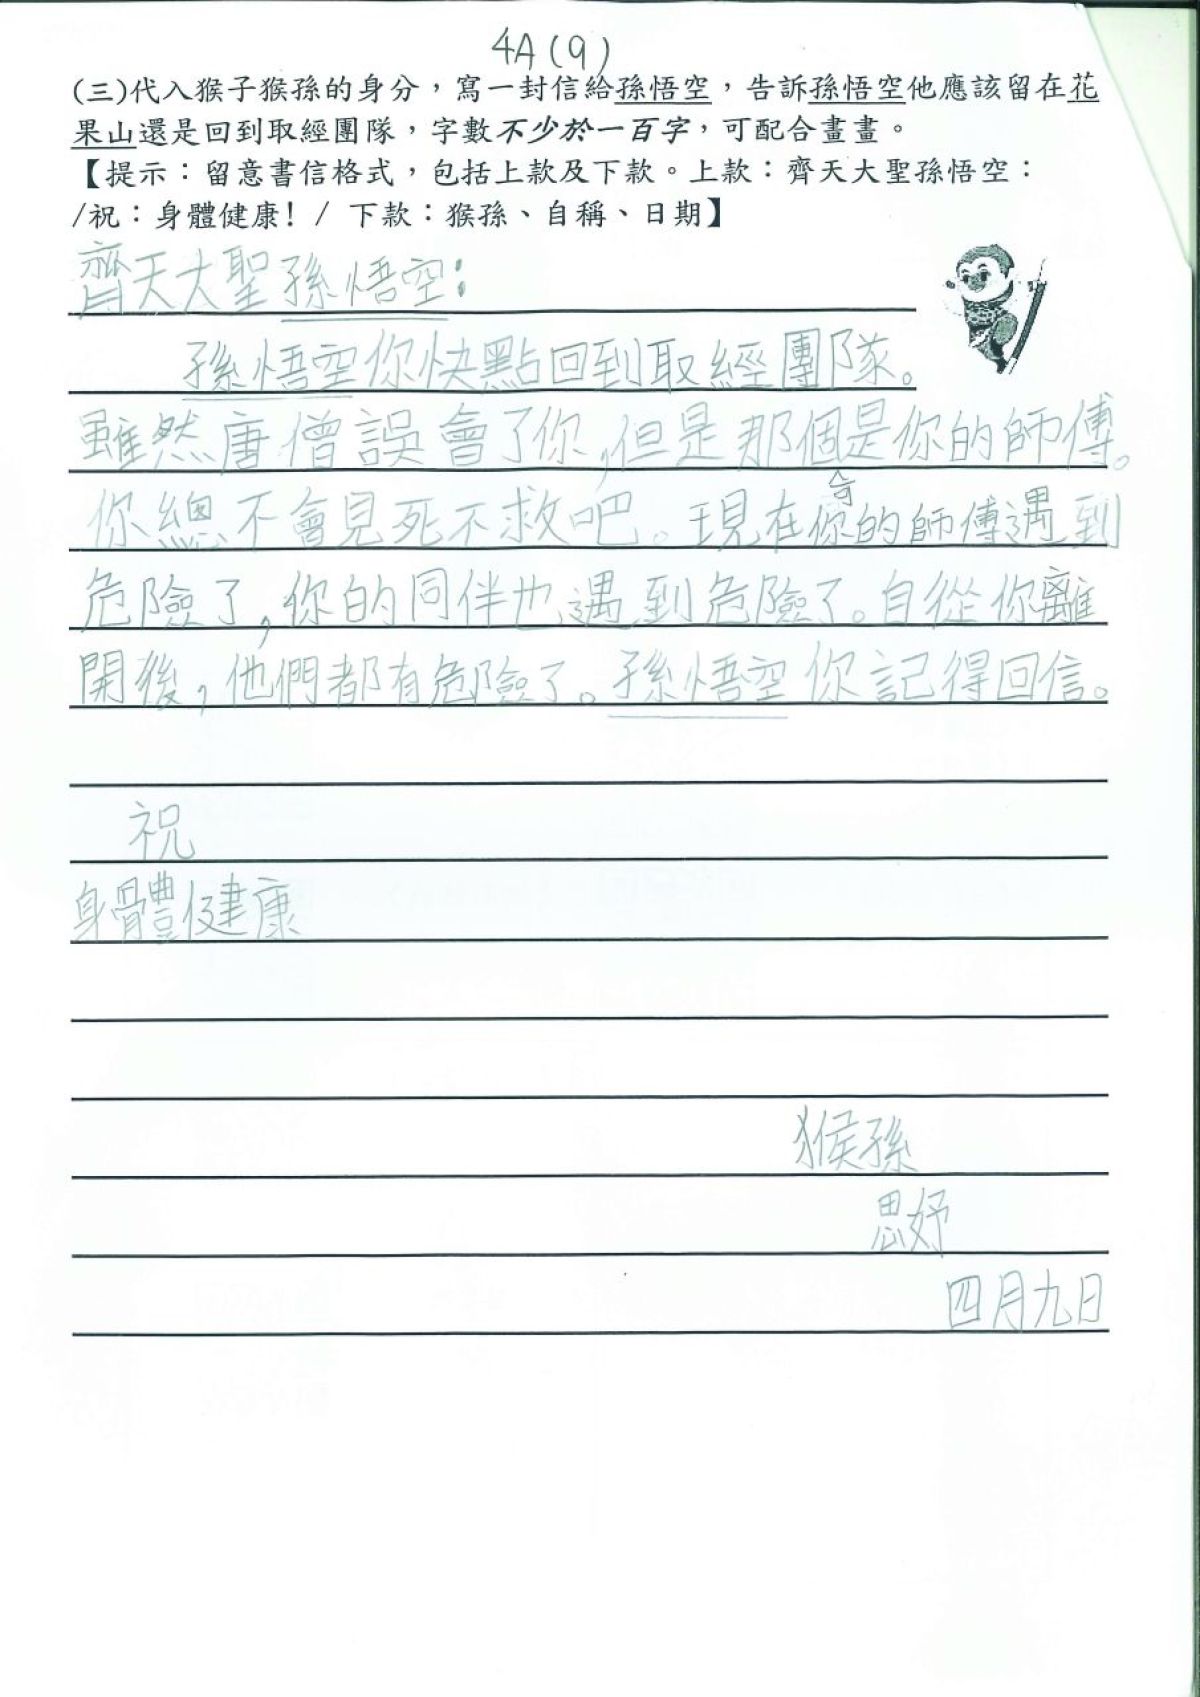 4A(9)
(三)代入猴子猴孫的身分，寫一封信給孫悟空，告訴孫悟空他應該留在花
果山還是回到取經團隊，字數不少於一百字，可配合畫畫。
【提示：留意書信格式，包括上款及下款。上款：齊天大聖孫悟空：
/祝：身體健康! / 下款：猴孫、自稱、日期】
齊天大聖孫悟空：
孫悟空你快點回到取經團隊。
雖然唐僧誤會了你，但是那個是你的師傅。
你總不會見死不救吧。現在你的師傅遇到
危險了，你的同伴也遇到危險了。自從你離
開後，他們都有危險了。孫悟空你記得回信。
祝
身體健康
猴孫
思妤
四月九日